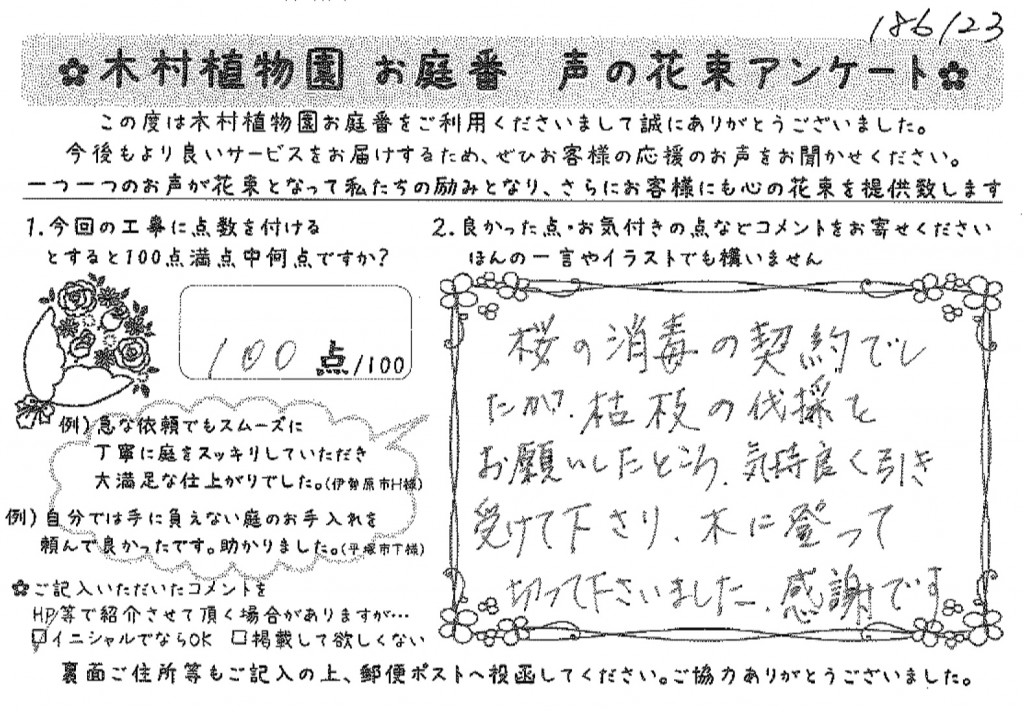 186123
木村植物園 お庭番 声の花束アンケート
この度は木村植物園お庭番をご利用くださいまして誠にありがとうございました。
今後もより良いサービスをお届けするため、ぜひお客様の応援のお声をお聞かせください。
一つ一つのお声が花束となって私たちの励みとなり、さらにお客様にも心の花束を提供致します
1.今回の工事に点数を付ける
とすると100点満点中何点ですか?
100 点/100
例)急な依頼でもスムーズに
丁寧に庭をスッキリしていただき
大満足な仕上がりでした。(伊勢原市H様)
例)自分では手に負えない庭のお手入れを
頼んで良かったです。助かりました。(平塚市T様)
✿ご記入いただいたコメントを
HP等で紹介させて頂く場合がありますが…
☑イニシャルでならOK □掲載して欲しくない
2.良かった点・お気付きの点などコメントをお寄せください
ほんの一言やイラストでも構いません
桜の消毒の契約でし
たが、枯枝の伐採を
お願いしたところ、気持良く引き
受けて下さり、木に登って
切って下さいました、感謝です。
裏面ご住所等もご記入の上、郵便ポストへ投函してください。ご協力ありがとうございました。